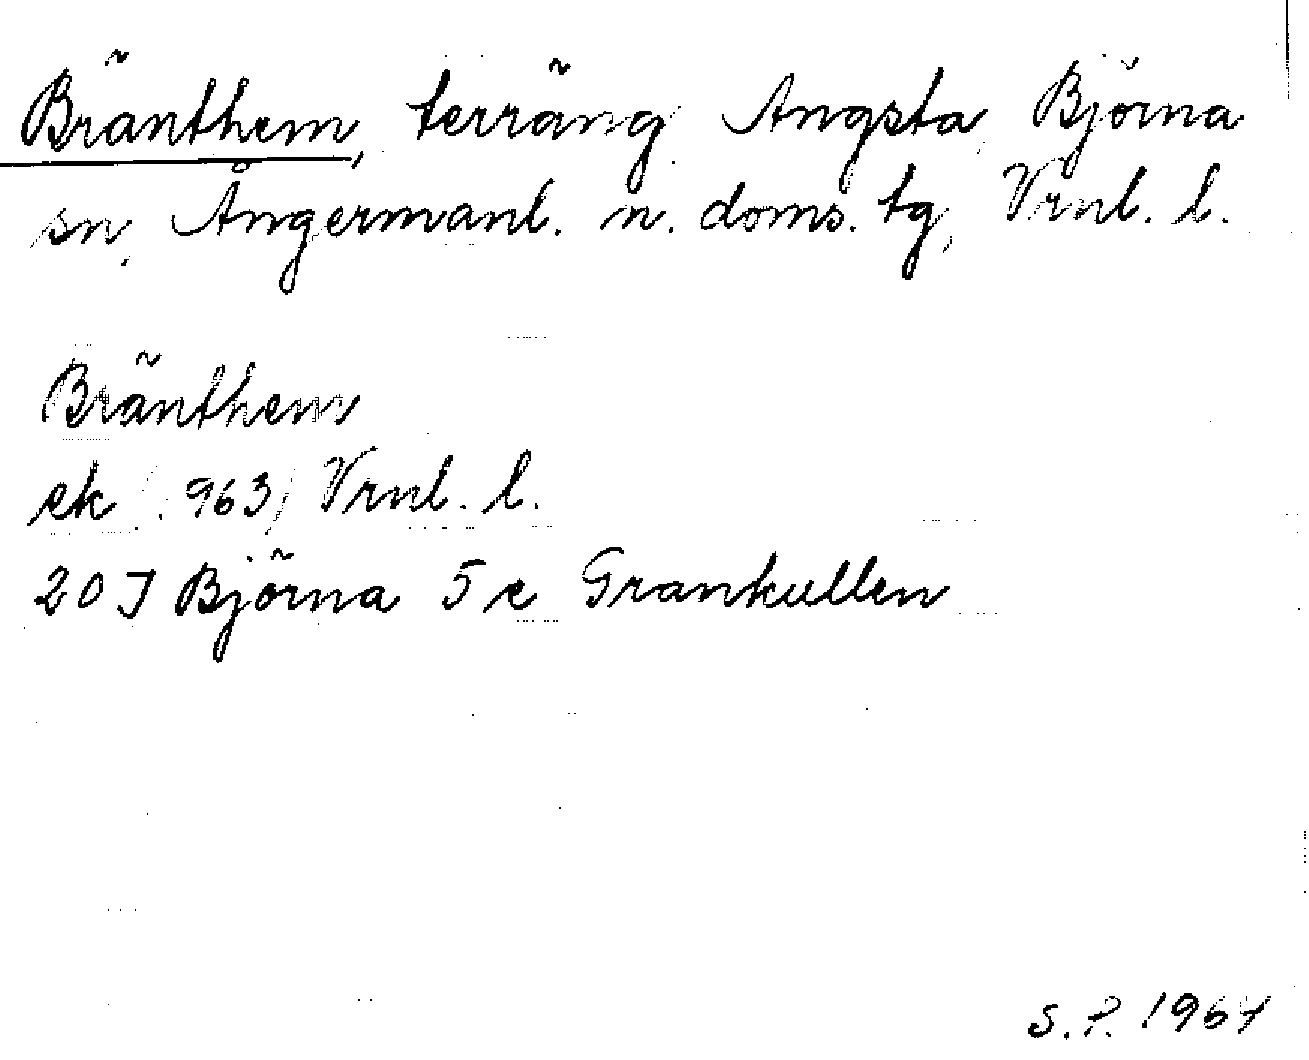 Bränthem, terräng Angsta, Björna
sn, Ångermanl. n. doms. tg, Vrnl. l.
Bränthem
ek (1963) Vrnl. l.
20 J Björna 5 e Grankullen
S. P. 1964